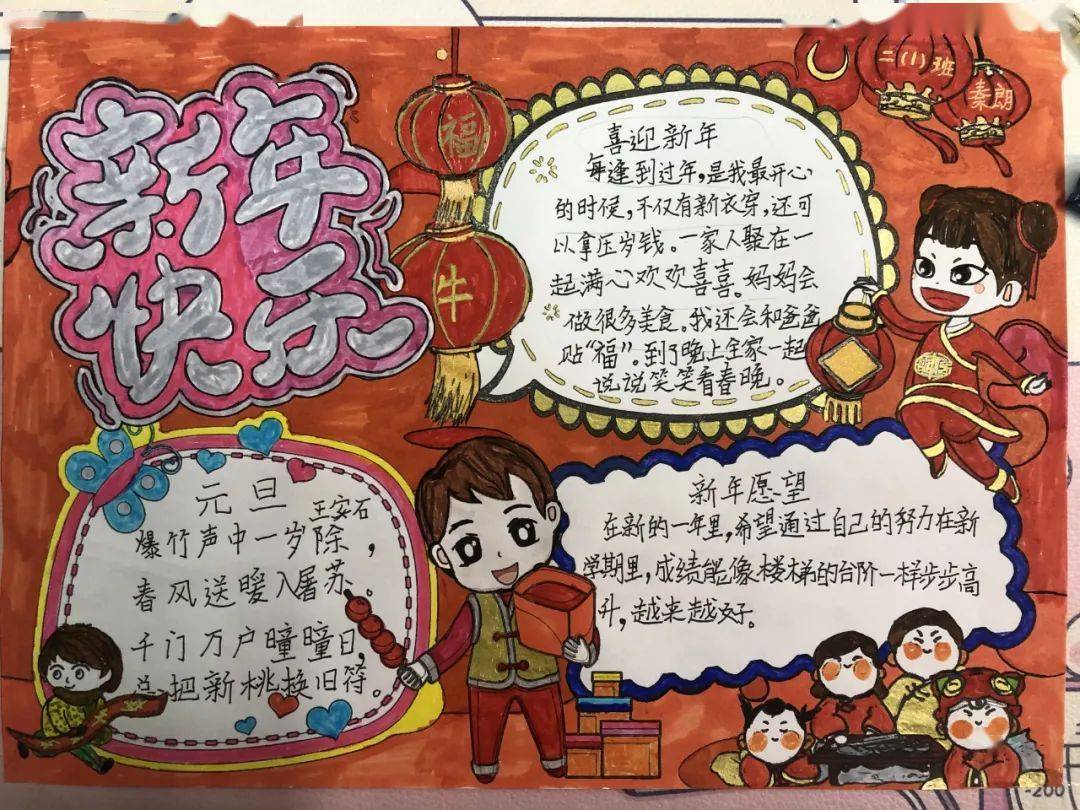 新年
快乐
福
牛
二(1)班
秦朗
喜迎新年
每逢到过年,是我最开心
的时候,不仅有新衣穿,还可
以拿压岁钱。一家人聚在一
起满心欢欢喜喜。妈妈会
做很多美食。我还会和爸爸
贴“福”。到了晚上全家一起
说说笑笑看春晚。
元旦
王安石
爆竹声中一岁除,
春风送暖入屠苏。
千门万户曈曈日,
总把新桃换旧符。
新年愿望
在新的一年里,希望通过自己的努力在新
学期里,成绩能像楼梯的台阶一样步步高
升,越来越好。
-200